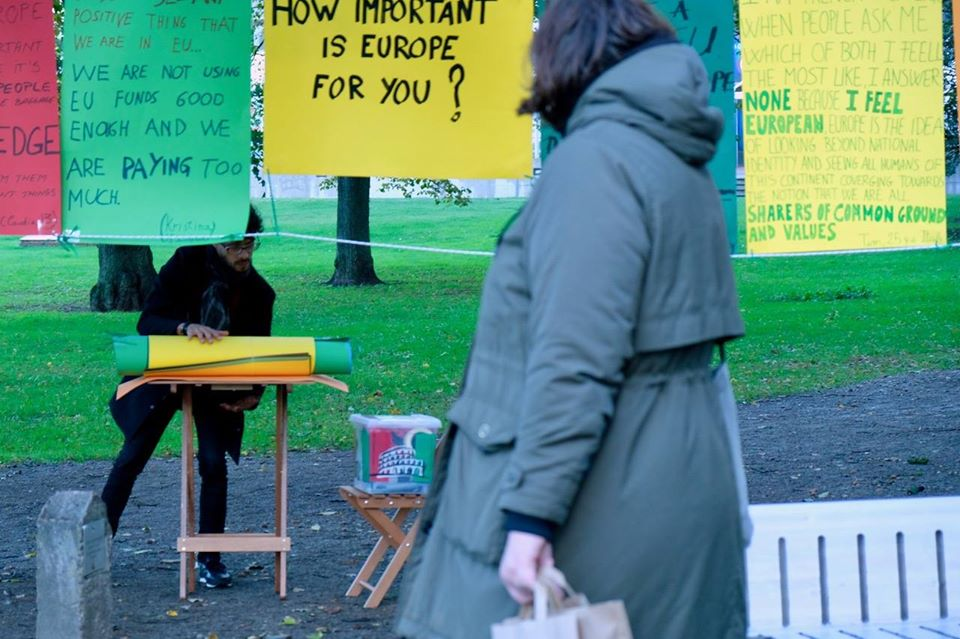 ROPE
RTANT
E IT'S
PEOPLE
EDGE
THEM
ANT THINGS
POSITIVE THING THAT
WE ARE IN EU...
WE ARE NOT USING
EU FUNDS GOOD
ENOGH AND WE
ARE PAYING TOO
MUCH.
(Kristina)
HOW IMPORTANT
IS EUROPE
FOR YOU?
A
EU
WHEN PEOPLE ASK ME
WHICH OF BOTH I FEEL
THE MOST LIKE, I ANSWER
NONE BECAUSE I FEEL
EUROPEAN. EUROPE IS THE IDEA
OF LOOKING BEYOND NATIONAL
IDENTITY AND SEEING ALL HUMANS OF
THIS CONTINENT COVERGING TOWARDS
THE NOTION THAT WE ARE ALL
SHARERS OF COMMON GROUND
AND VALUES